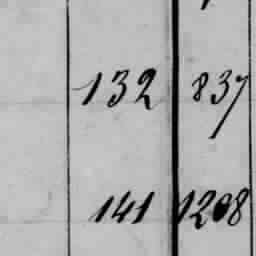 132 837
141 1208